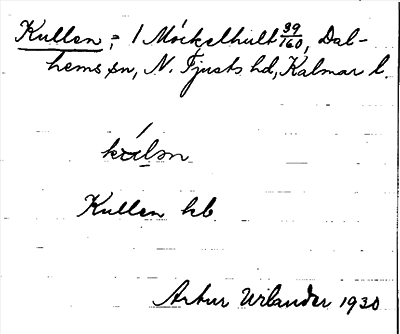 Kullen, = 1 Möckelhult 39/160, Dal-
hems sn, N. Tjusts hd, Kalmar l.
Kullen hb
Artur Urlander 1930